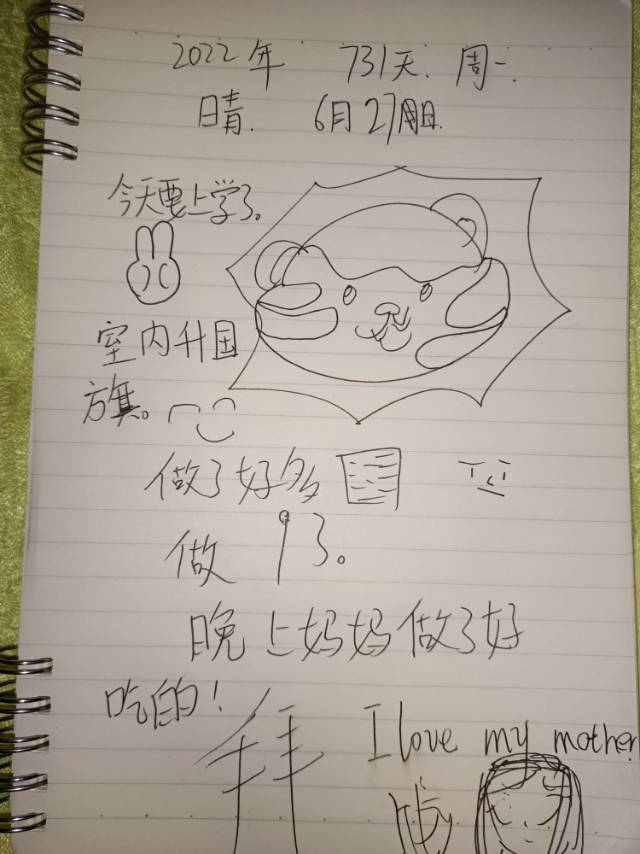 2022年 731天. 周一.
日青. 6月27日.
今天要上学了。
室内升国
旗。
做了好多
做 了。
晚上妈妈做了好
吃的!
拜 I love my mother